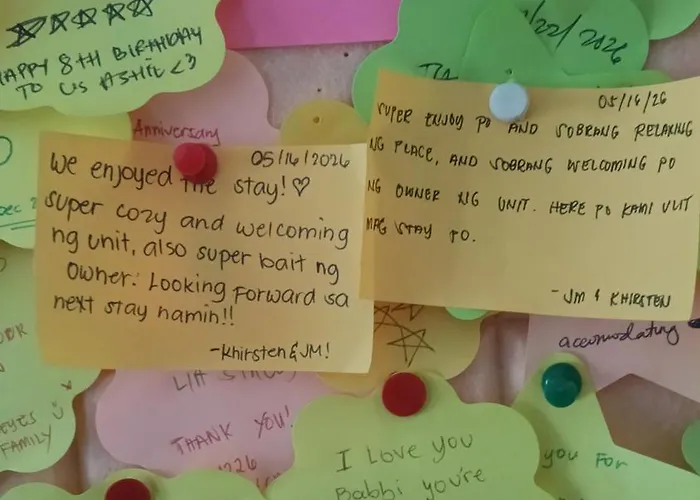 HAPPY 8TH BIRTHDAY
TO US ASHTE <3
/22/2026
Anniversary
05/16/2026
We enjoyed the stay! ♡
super cozy and welcoming
ng unit, also super bait ng
Owner. Looking forward sa
next stay namin!!
-Khirsten & JM!
05/16/26
SUPER ENJOY PO AND SOBRANG RELAXING
NG PLACE, AND SOBRANG WELCOMING PO
NG OWNER NG UNIT. HERE PO KAMI ULIT
MAG STAY PO.
- JM & KHIRSTEN
accomodating
THANK YOU!
FAMILY
I Love you
Babbi you're
you For